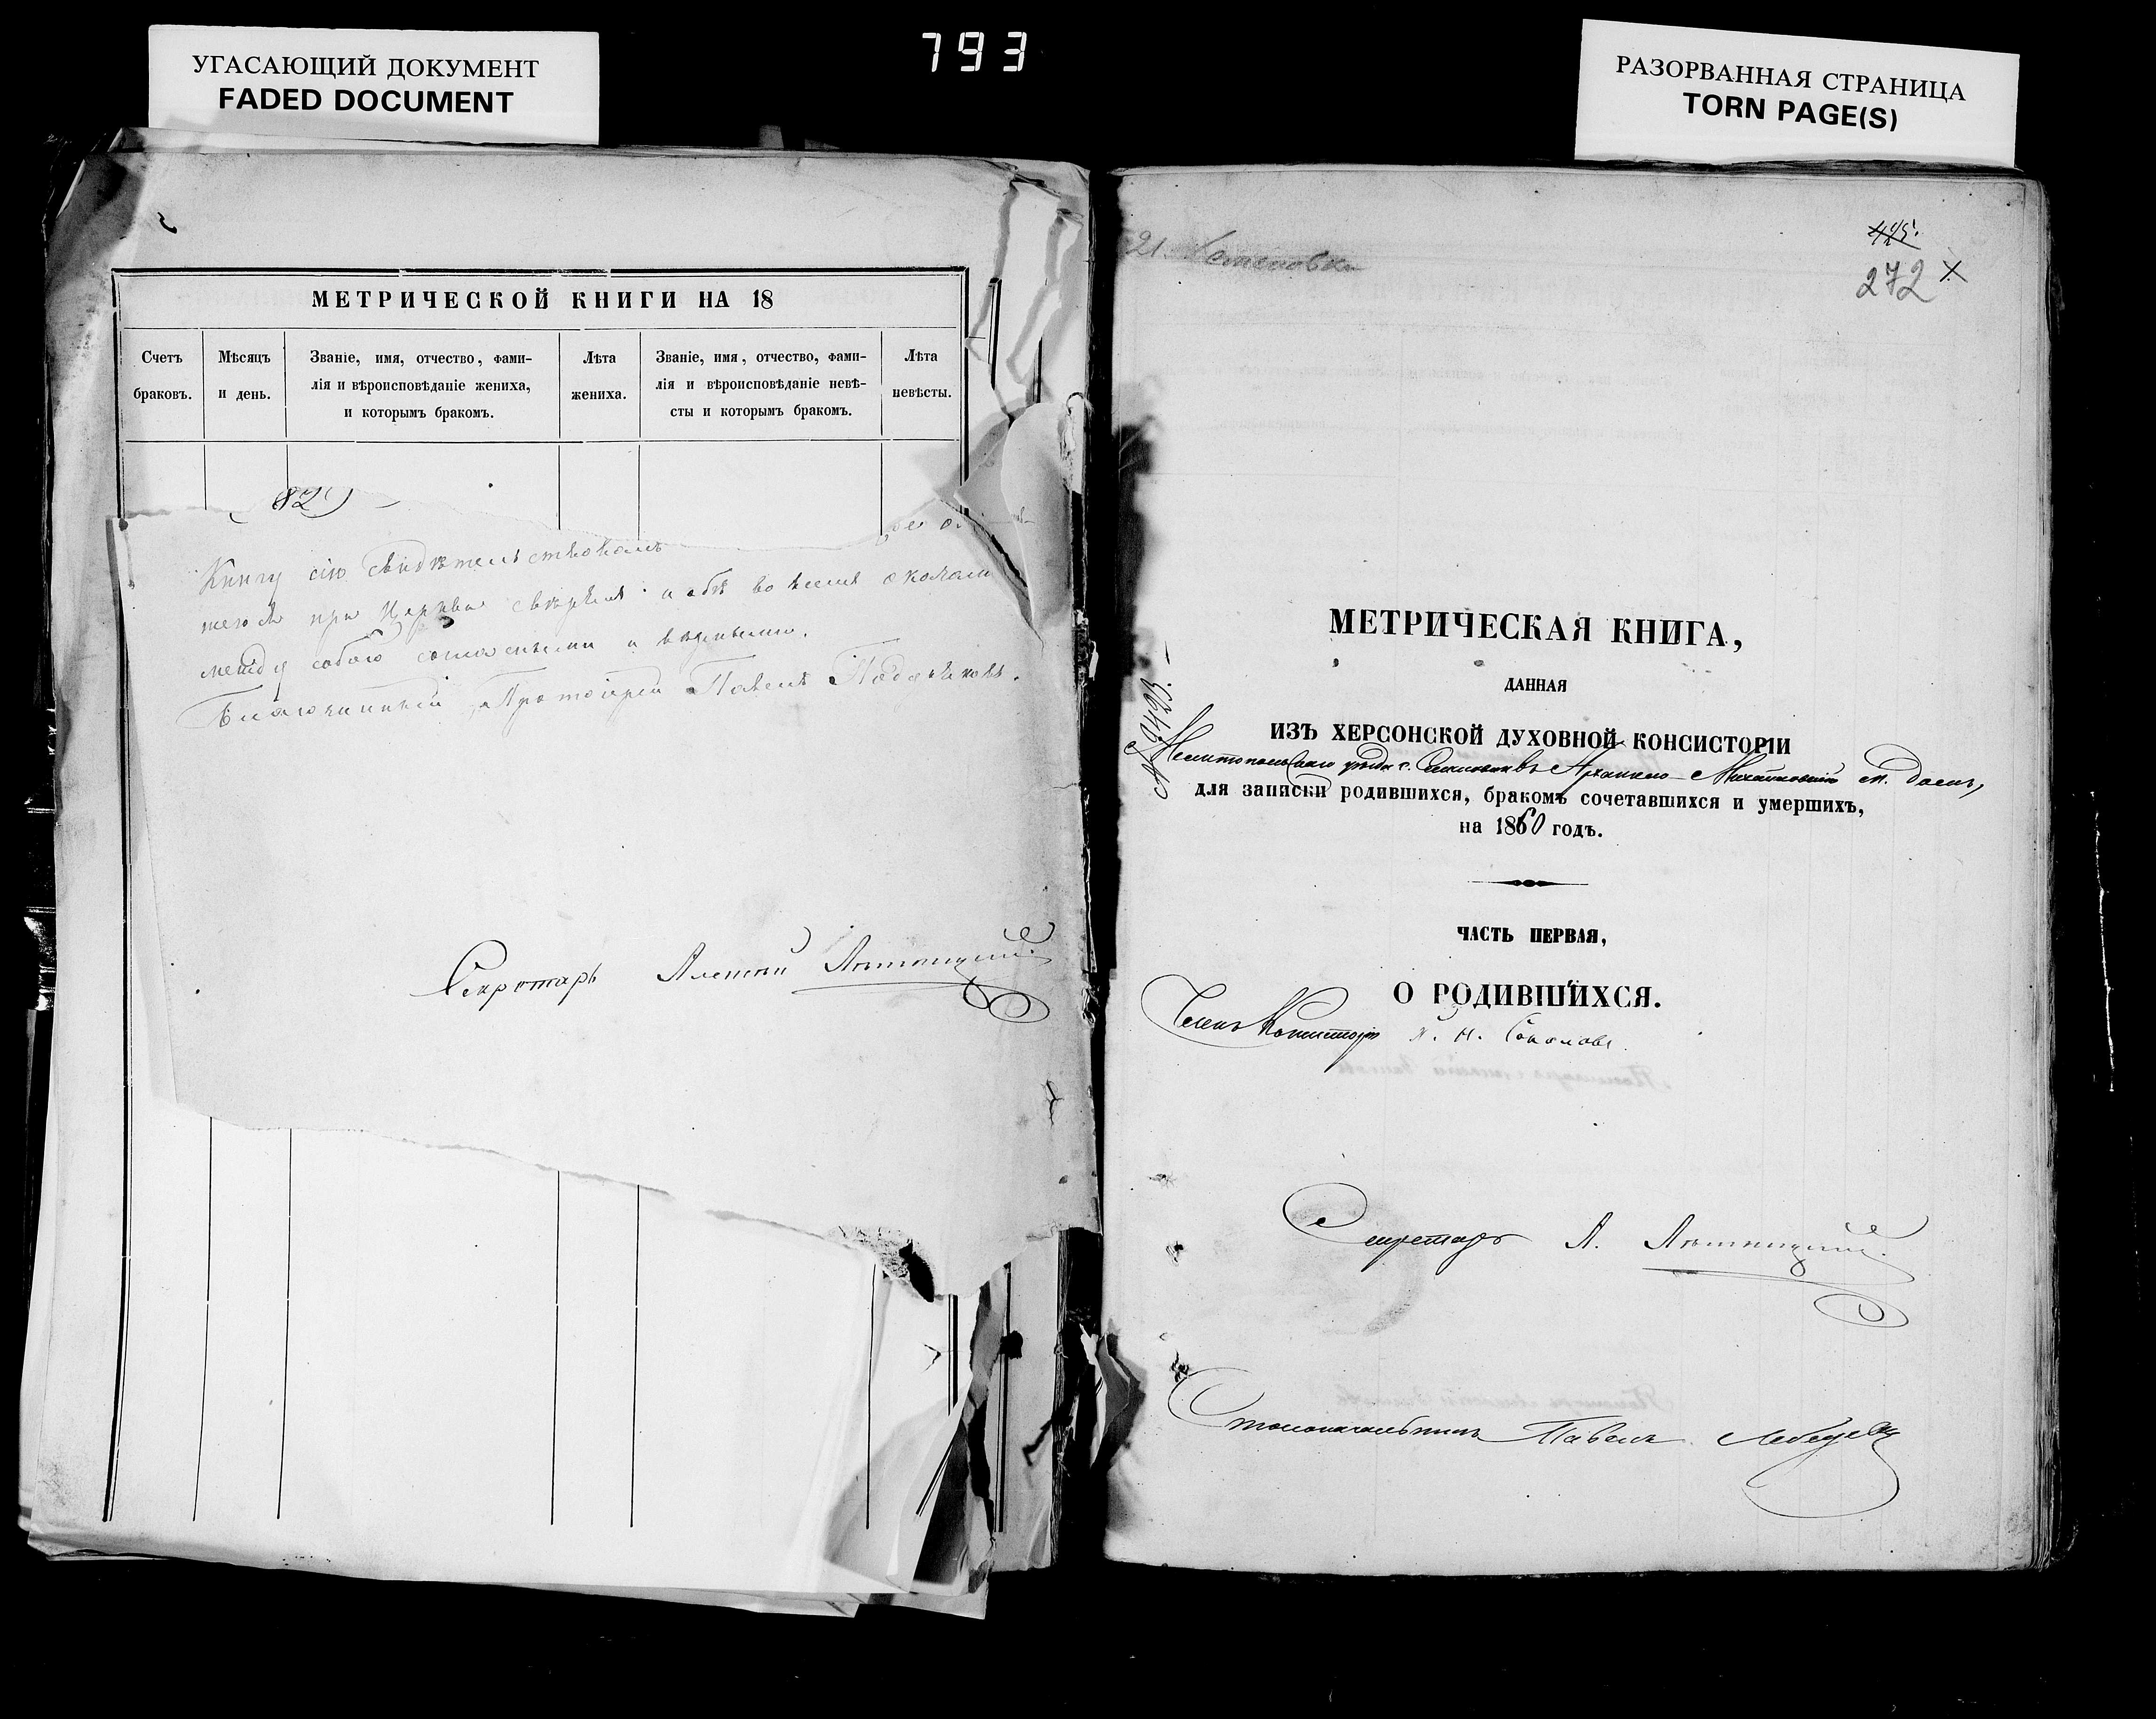 УГАСАЮЩИЙ ДОКУМЕНТ
FADED DOCUMENT
793
РАЗОРВАННАЯ СТРАНИЦА
TORN PAGE(S)
МЕТРИЧЕСКОЙ КНИГИ НА 18
Счетъ браковъ.
Мѣсяцъ и день.
Званіе, имя, отчество, фами-
лія и вѣроисповѣданіе жениха,
и которымъ бракомъ.
Лѣта жениха.
Званіе, имя, отчество, фами-
лія и вѣроисповѣданіе невѣ-
сты и которымъ бракомъ.
Лѣта невѣсты.
82)
Книгу сію свидѣтельствовалъ
при Церкви свѣрялъ и обѣ во всемъ оказали
между собою согласными и вѣрными.
Благочинный Протоіерей Павелъ
Секретарь Алексей
21.
445.
272 X
МЕТРИЧЕСКАЯ КНИГА,
ДАННАЯ
ИЗЪ ХЕРСОНСКОЙ ДУХОВНОЙ КОНСИСТОРІИ
Мелитопольскаго уѣзда с. въ Архангело-Михайловскую
для записки родившихся, бракомъ сочетавшихся и умершихъ,
на 1860 годъ.
ЧАСТЬ ПЕРВАЯ,
О РОДИВШИХСЯ.
Членъ Консисторіи Соколовъ
Секретарь А.
Столоначальникъ Павелъ Лебедевъ